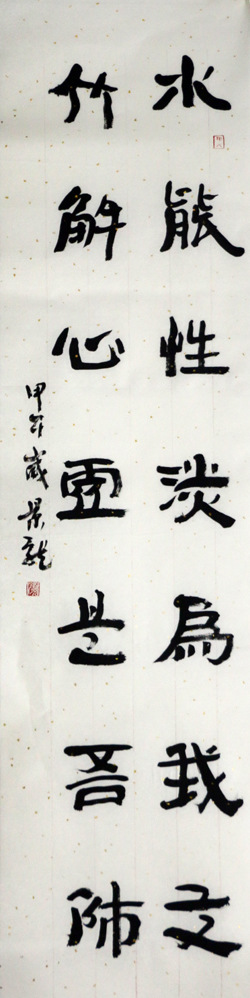 水能性淡為我友
竹解心虛是吾師
甲午歲景龍